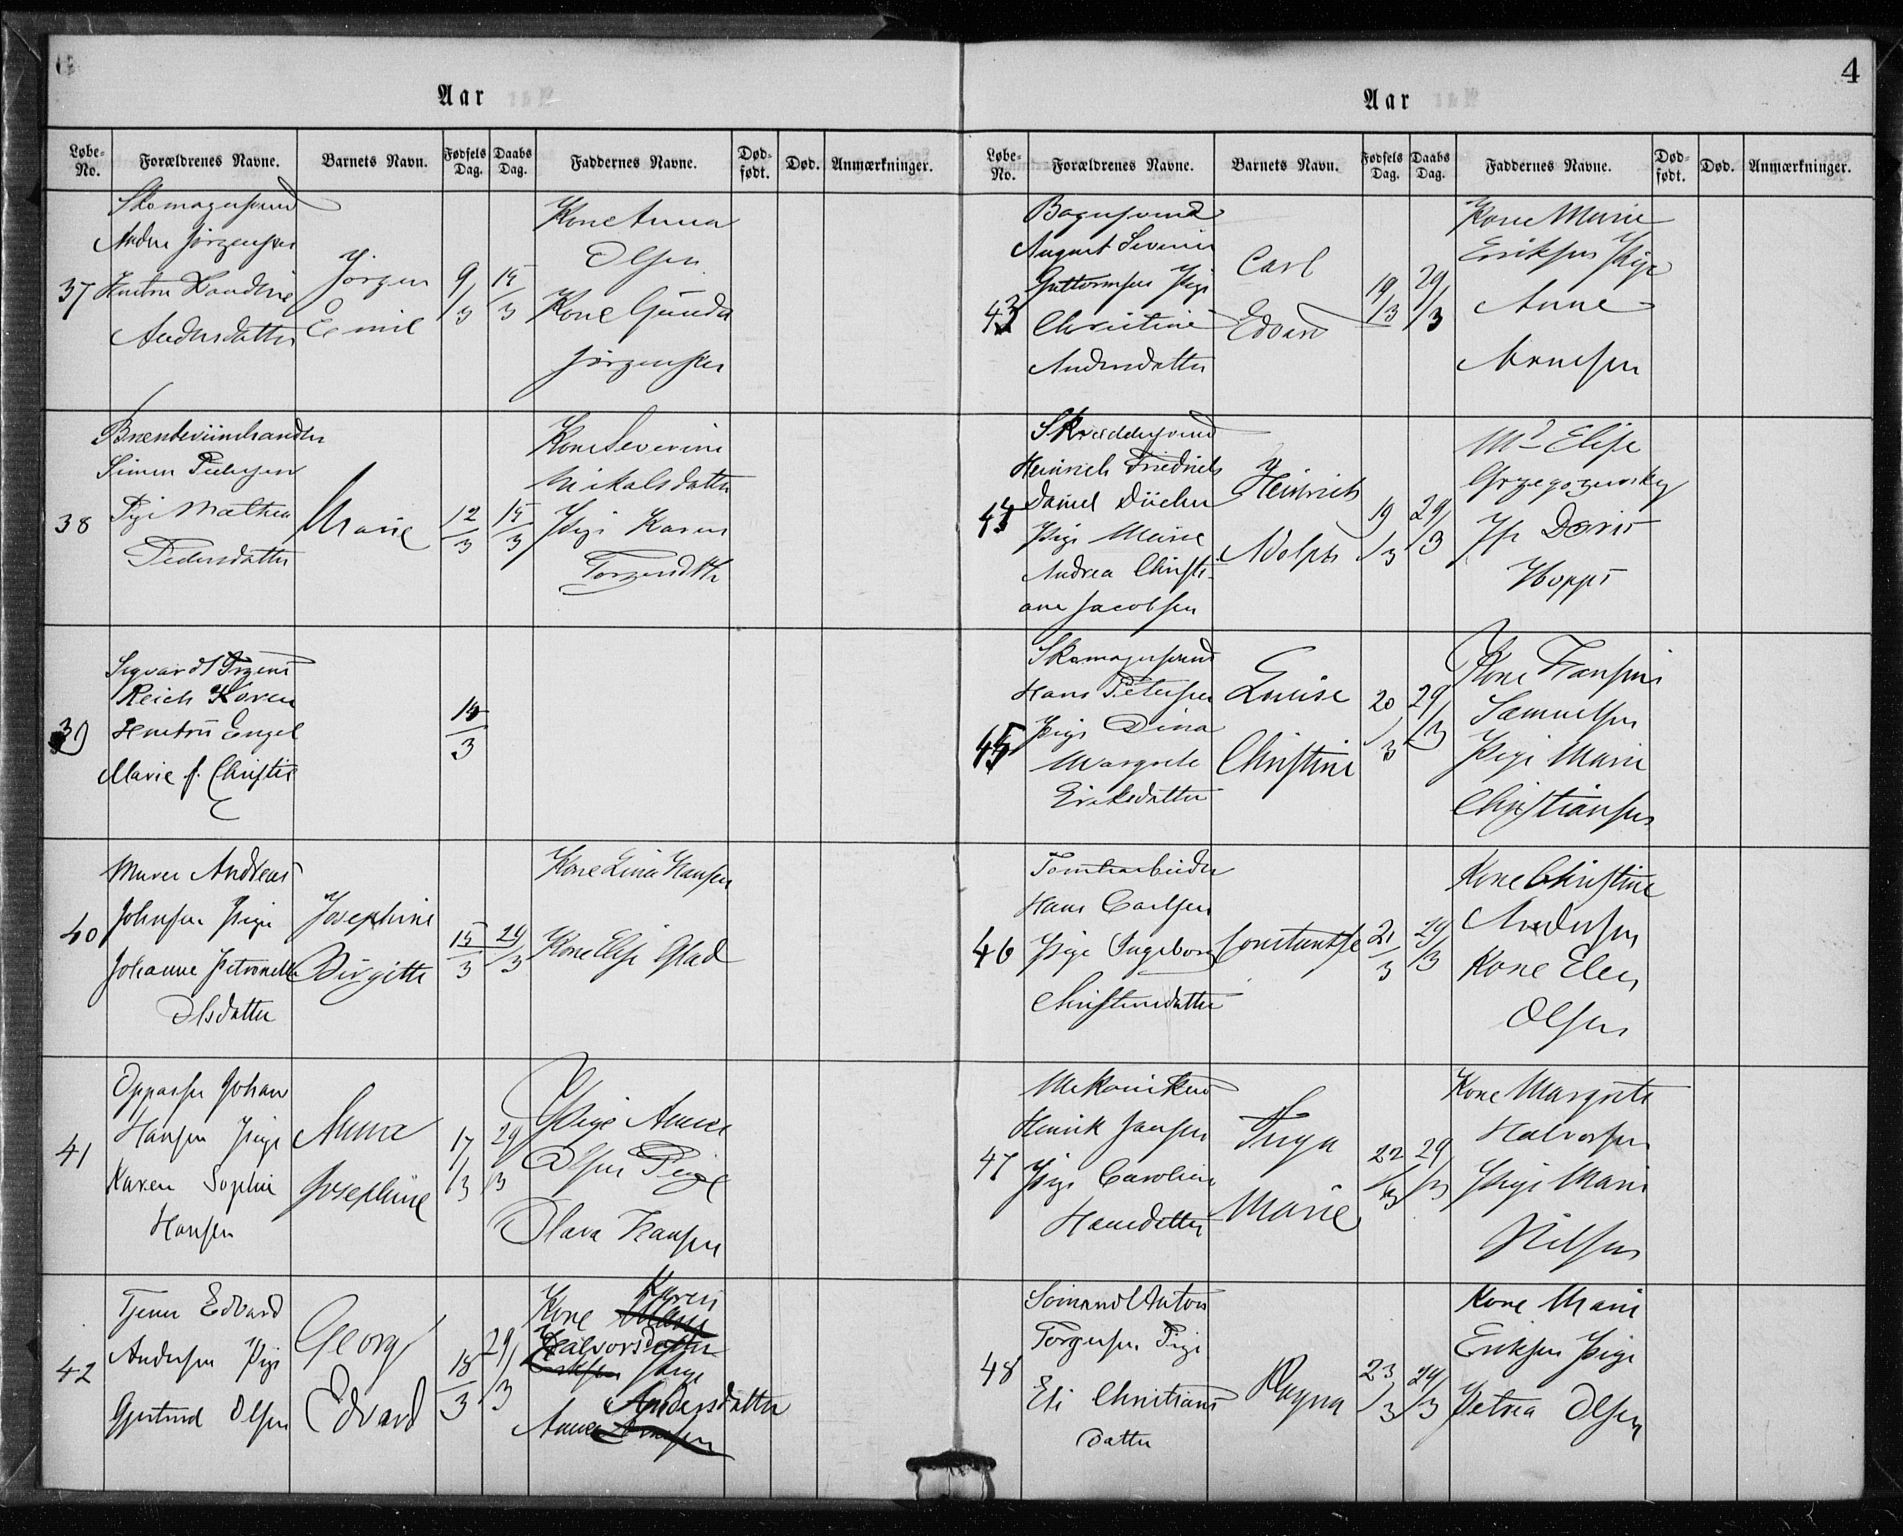 4
Aar
Løbe-No. Forældrenes Navne. Barnets Navn. Fødsels Dag. Daabs Dag. Faddernes Navne. Død-født. Død. Anmærkninger.
37
Skomagersvend
Andrea Jørgensen
Andersdatter
Jørgen
Emil
9/3
15/3
Kone Anna
Olsen
Kone Gunda
Jørgensen
38
Brændeviinshandler
Simen Pedersen
Pige Mathea
Pedersdatter
Marie
12/3
15/3
Kone Severine
Nikolsdatter
Pige Karen
39
Reich Karen
Engel
Marie f. Christie
14/3
40
Murer Andreas
Johnsen Pige
Johanne Petronelle
Olsdatter
Josephine
Birgitte
15/3
29/3
Kone Lina Hansen
Kone Elise Glad
41
Oppasser Johan
Hansen Pige
Karen Sophie
Hansen
Anna
Josephine
17/3
29/3
Pige Anna
Olsen Pige
Olava Hansen
42
Tjener Edvard
Andersen Pige
Gjertrud Olsen
Georg
Edvard
18/3
29/3
Karen
Kone
Halvorsdatter
Pige
Andersdatter
Anna
Aar
Løbe-No. Forældrenes Navne. Barnets Navn. Fødsels Dag. Daabs Dag. Faddernes Navne. Død-født. Død. Anmærkninger.
43
Bagersvend
August Severin
Guttormsen Pige
Christine
Andersdatter
Carl
Edvard
19/3
29/3
Kone Marie
Eriksen Pige
Anne
Arnesen
44
Skreddersvend
Heinrich Friedrich
Daniel
Pige Marie
Andrea Christi-
ane Jacobsen
Heinrich
Adolph
19/3
29/3
Elise
Doris
Hoppe
45
Skomagersvend
Hans Petersen
Pige Dina
Margrete
Eriksdatter
Louise
Christine
20/3
29/3
Kone Hansine
Samuelsen
Pige Marie
Christiansen
46
Tomtearbeider
Hans Carlsen
Pige Ingeborg
Christensdatter
Constantse
21/3
29/3
Kone Christine
Andersen
Kone Elen
Olsen
47
Mekanikus
Henrik Jansen
Pige Caroline
Hansdatter
Inga
Marie
22/3
29/3
Kone Margrete
Halvorsen
Pige Marie
Nilsen
48
Sømand Anton
Torgersen Pige
Eli Christians
datter
Ragna
23/3
29/3
Kone Marie
Eriksen Pige
Petrea Olsen